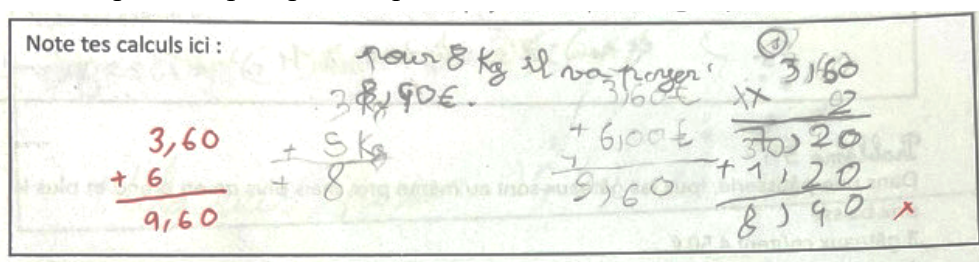 Note tes calculs ici :
pour 8 Kg il va payer
8,40€.
3,60
+ 6
9,60
3 Kg
+ 5 Kg
+ 8
3,60€
+ 6,00€
9,60
①
3,60
x 2
7,20
+ 1,20
8,40 x